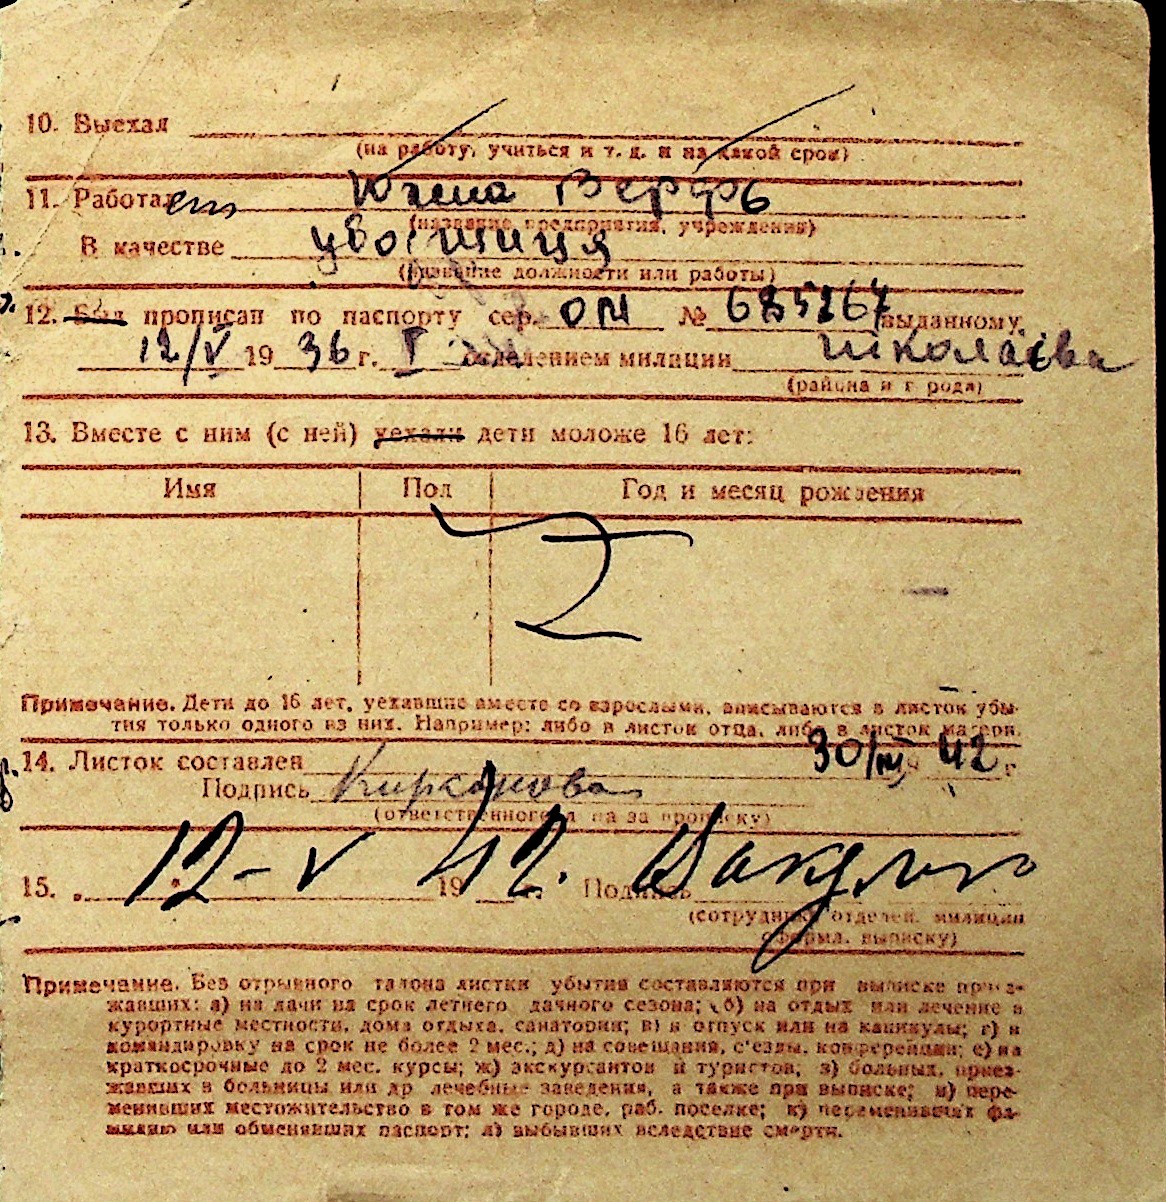 10. Выехал
(на работу, учиться и т. д. и на какой срок)
11. Работает Южна Верфь
(название предприятия, учреждения)
В качестве
(название должности или работы)
12. Был прописан по паспорту сер. ОМ № 685267 выданному
12/V 19 36 г. I отделением милиции Ніколаєва
(района и города)
13. Вместе с ним (с ней) уехали дети моложе 16 лет:
Имя Пол Год и месяц рождения
Z
Примечание. Дети до 16 лет, уехавшие вместе со взрослыми, вписываются в листок убы-
тия только одного из них. Например: либо в листок отца, либо в листок матери.
14. Листок составлен 30/III 42 г.
Подпись
(ответственного за прописку)
15. 12-V 1942 г. Подпись
(сотрудника отделен. милиции
оформл. выписку)
Примечание. Без отрывного талона листки убытия составляются при выписке приез-
жавших: а) на дачи на срок летнего дачного сезона; б) на отдых или лечение в
курортные местности, дома отдыха, санатории; в) в отпуск или на каникулы; г) в
командировку на срок не более 2 мес.; д) на совещания, с'езды, конференции; е) на
краткосрочные до 2 мес. курсы; ж) экскурсантов и туристов; з) больных, приез-
жавших в больницы или др лечебные заведения, а также при выписке; и) пере-
менивших местожительство в том же городе, раб. поселке; к) переменивших фа-
милию или обменявших паспорт; л) выбывших вследствие смерти.